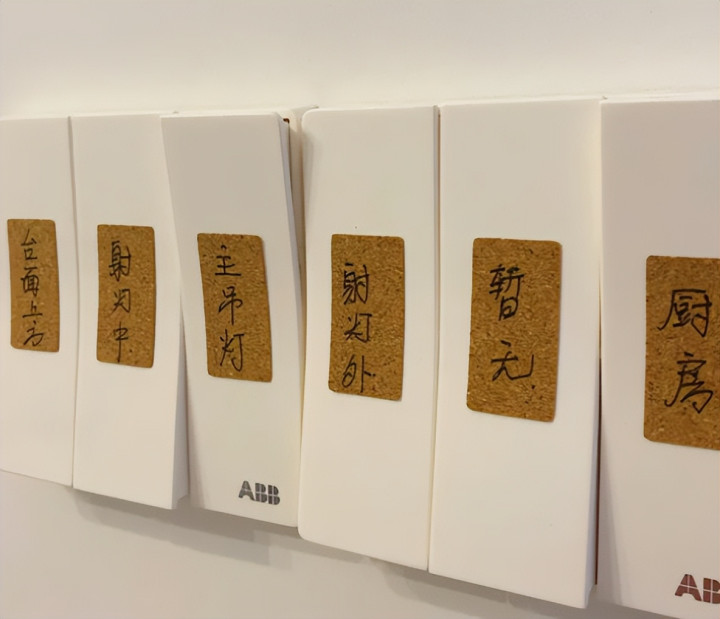 台面上方
射灯中
主吊灯
ABB
射灯外
暂无
厨房